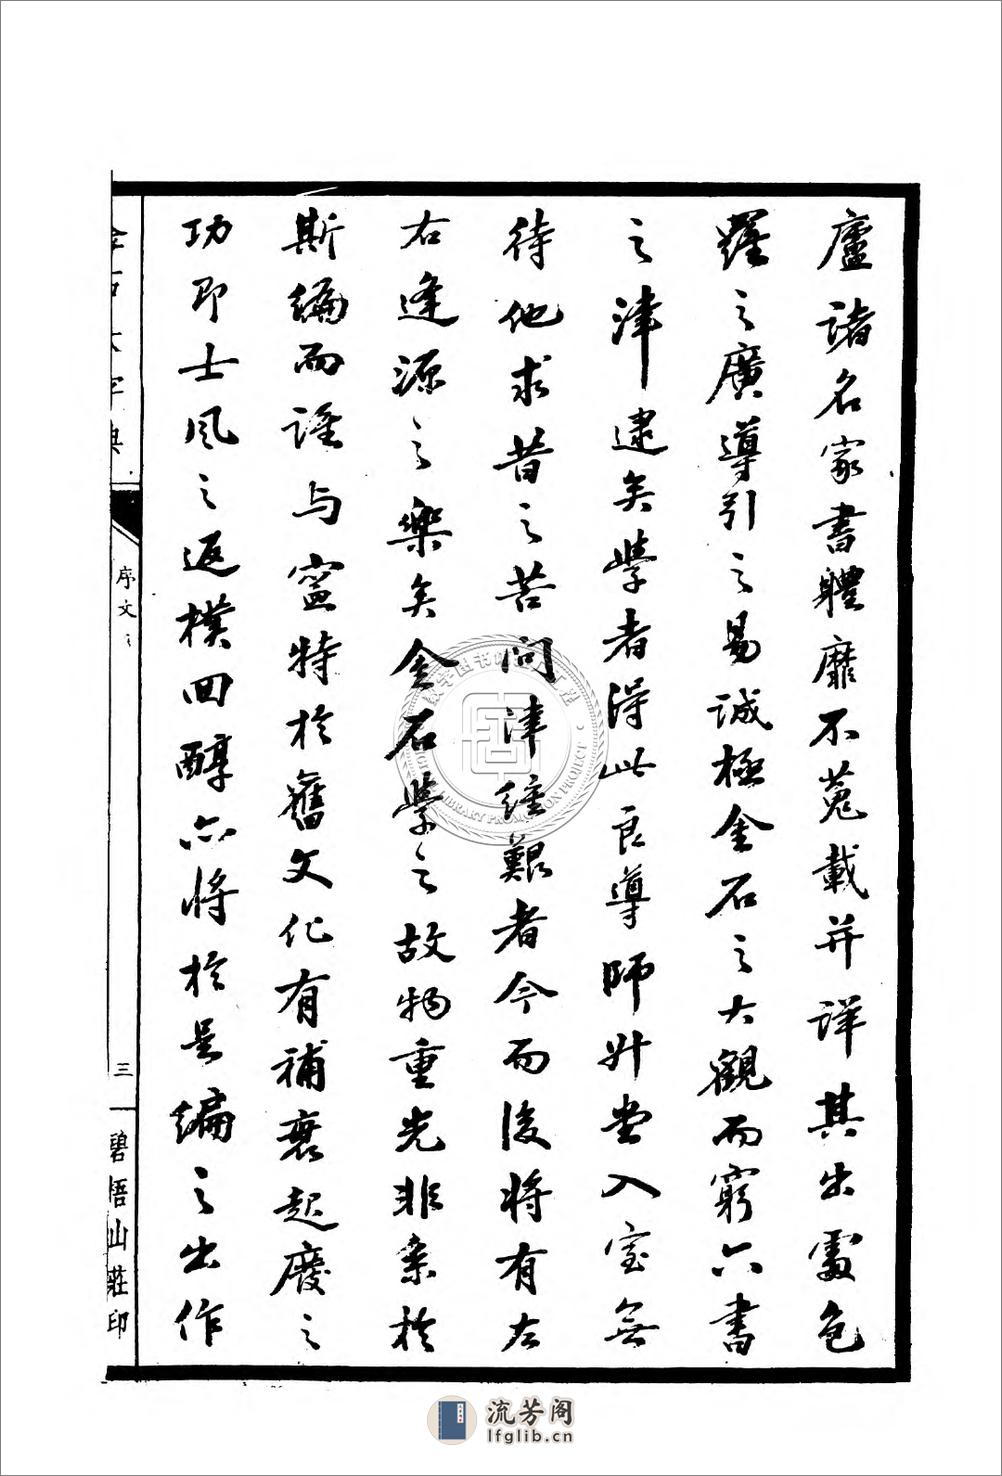 廬諸名家書體靡不蒐載并詳其出處包
羅之廣導引之易誠極金石之大觀而窮六書
之津逮矣學者得此良導師升堂入室無
待他求昔之苦問津維艱者今而後將有左
右逢源之樂矣金石學之故物重光非案於
斯編而誰与寍特於舊文化有補衰起廢之
功即士風之返樸回醇亦將於是編之出作
金石大字典
序文
三
碧梧山莊印
流芳阁
lfglib.cn